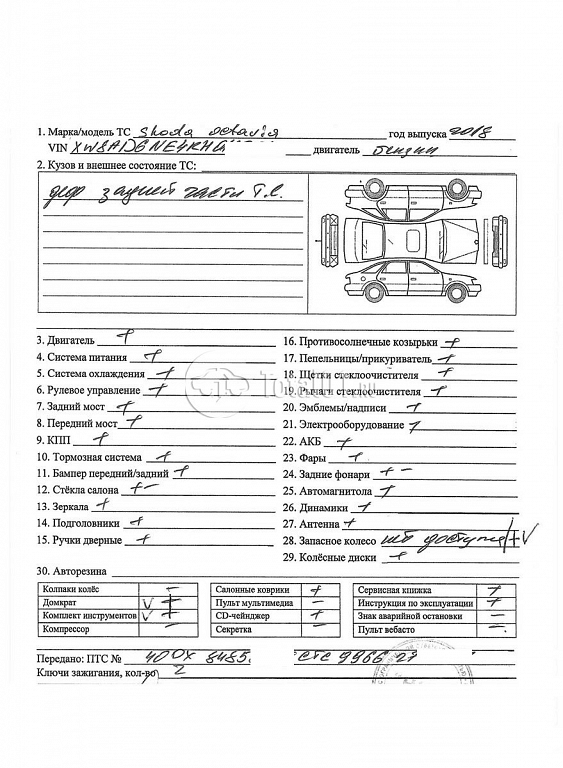 1. Марка/модель ТС Skoda octavia год выпуска 2018
VIN двигатель бензин
2. Кузов и внешнее состояние ТС:
деф задней части Т.С.
3. Двигатель +
4. Система питания +
5. Система охлаждения +
6. Рулевое управление +
7. Задний мост +
8. Передний мост +
9. КПП +
10. Тормозная система +
11. Бампер передний/задний +
12. Стёкла салона + -
13. Зеркала +
14. Подголовники +
15. Ручки дверные +
16. Противосолнечные козырьки +
17. Пепельницы/прикуриватель +
18. Щётки стеклоочистителя +
19. Рычаги стеклоочистителя +
20. Эмблемы/надписи +
21. Электрооборудование +
22. АКБ +
23. Фары +
24. Задние фонари + -
25. Автомагнитола +
26. Динамики +
27. Антенна +
28. Запасное колесо
29. Колёсные диски +
30. Авторезина
Колпаки колёс -
Домкрат V +
Комплект инструментов V +
Компрессор -
Салонные коврики +
Пульт мультимедиа -
CD-чейнджер +
Секретка -
Сервисная книжка +
Инструкция по эксплуатации +
Знак аварийной остановки -
Пульт вебасто -
Передано: ПТС № 40 ОХ 8485. СТС 9966 27
Ключи зажигания, кол-во 2
Total01.ru